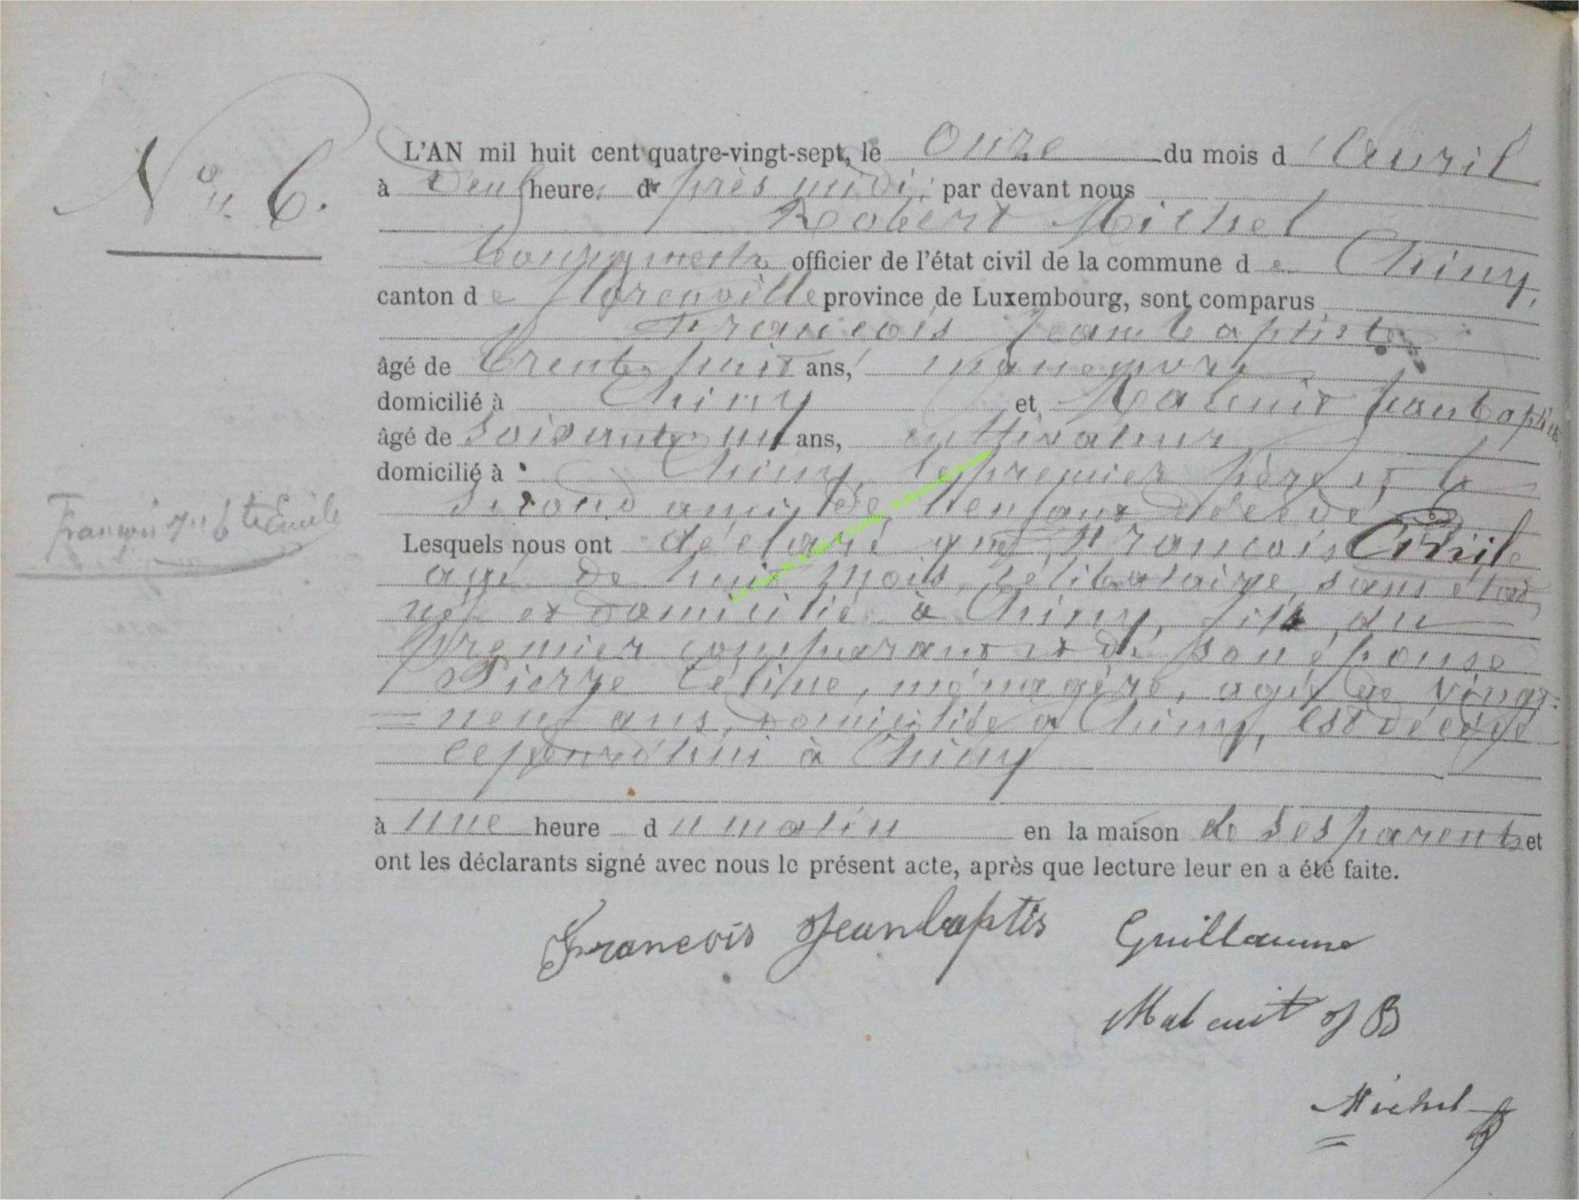 N° 6.
L'AN mil huit cent quatre-vingt-sept, le Onze du mois d'Avril
à Deux heures d'après midi, par devant nous
Robert Michel
Bourgmestre officier de l'état civil de la commune de Chiny,
canton de Florenville province de Luxembourg, sont comparus
Francois Jean baptiste
âgé de trente huit ans, manoeuvre
domicilié à Chiny et Malcuit Jean baptiste
âgé de Soixante un ans, cultivateur
domicilié à Chiny, le premier père et le
second ami de l'enfant décédé
François Emile
Lesquels nous ont déclaré que Francois Emile
agé de huit mois, célibataire, sans état,
né et domicilié à Chiny, fils du
premier comparant et de son épouse
Pierre Céline, ménagère, agée de vingt-
neuf ans, domiciliée à Chiny, est décédé
cejourd'hui à Chiny
à une heure du matin en la maison de ses parents et
ont les déclarants signé avec nous le présent acte, après que lecture leur en a été faite.
Francois Jeanbaptis Guillaume
Malcuit J B
Michel